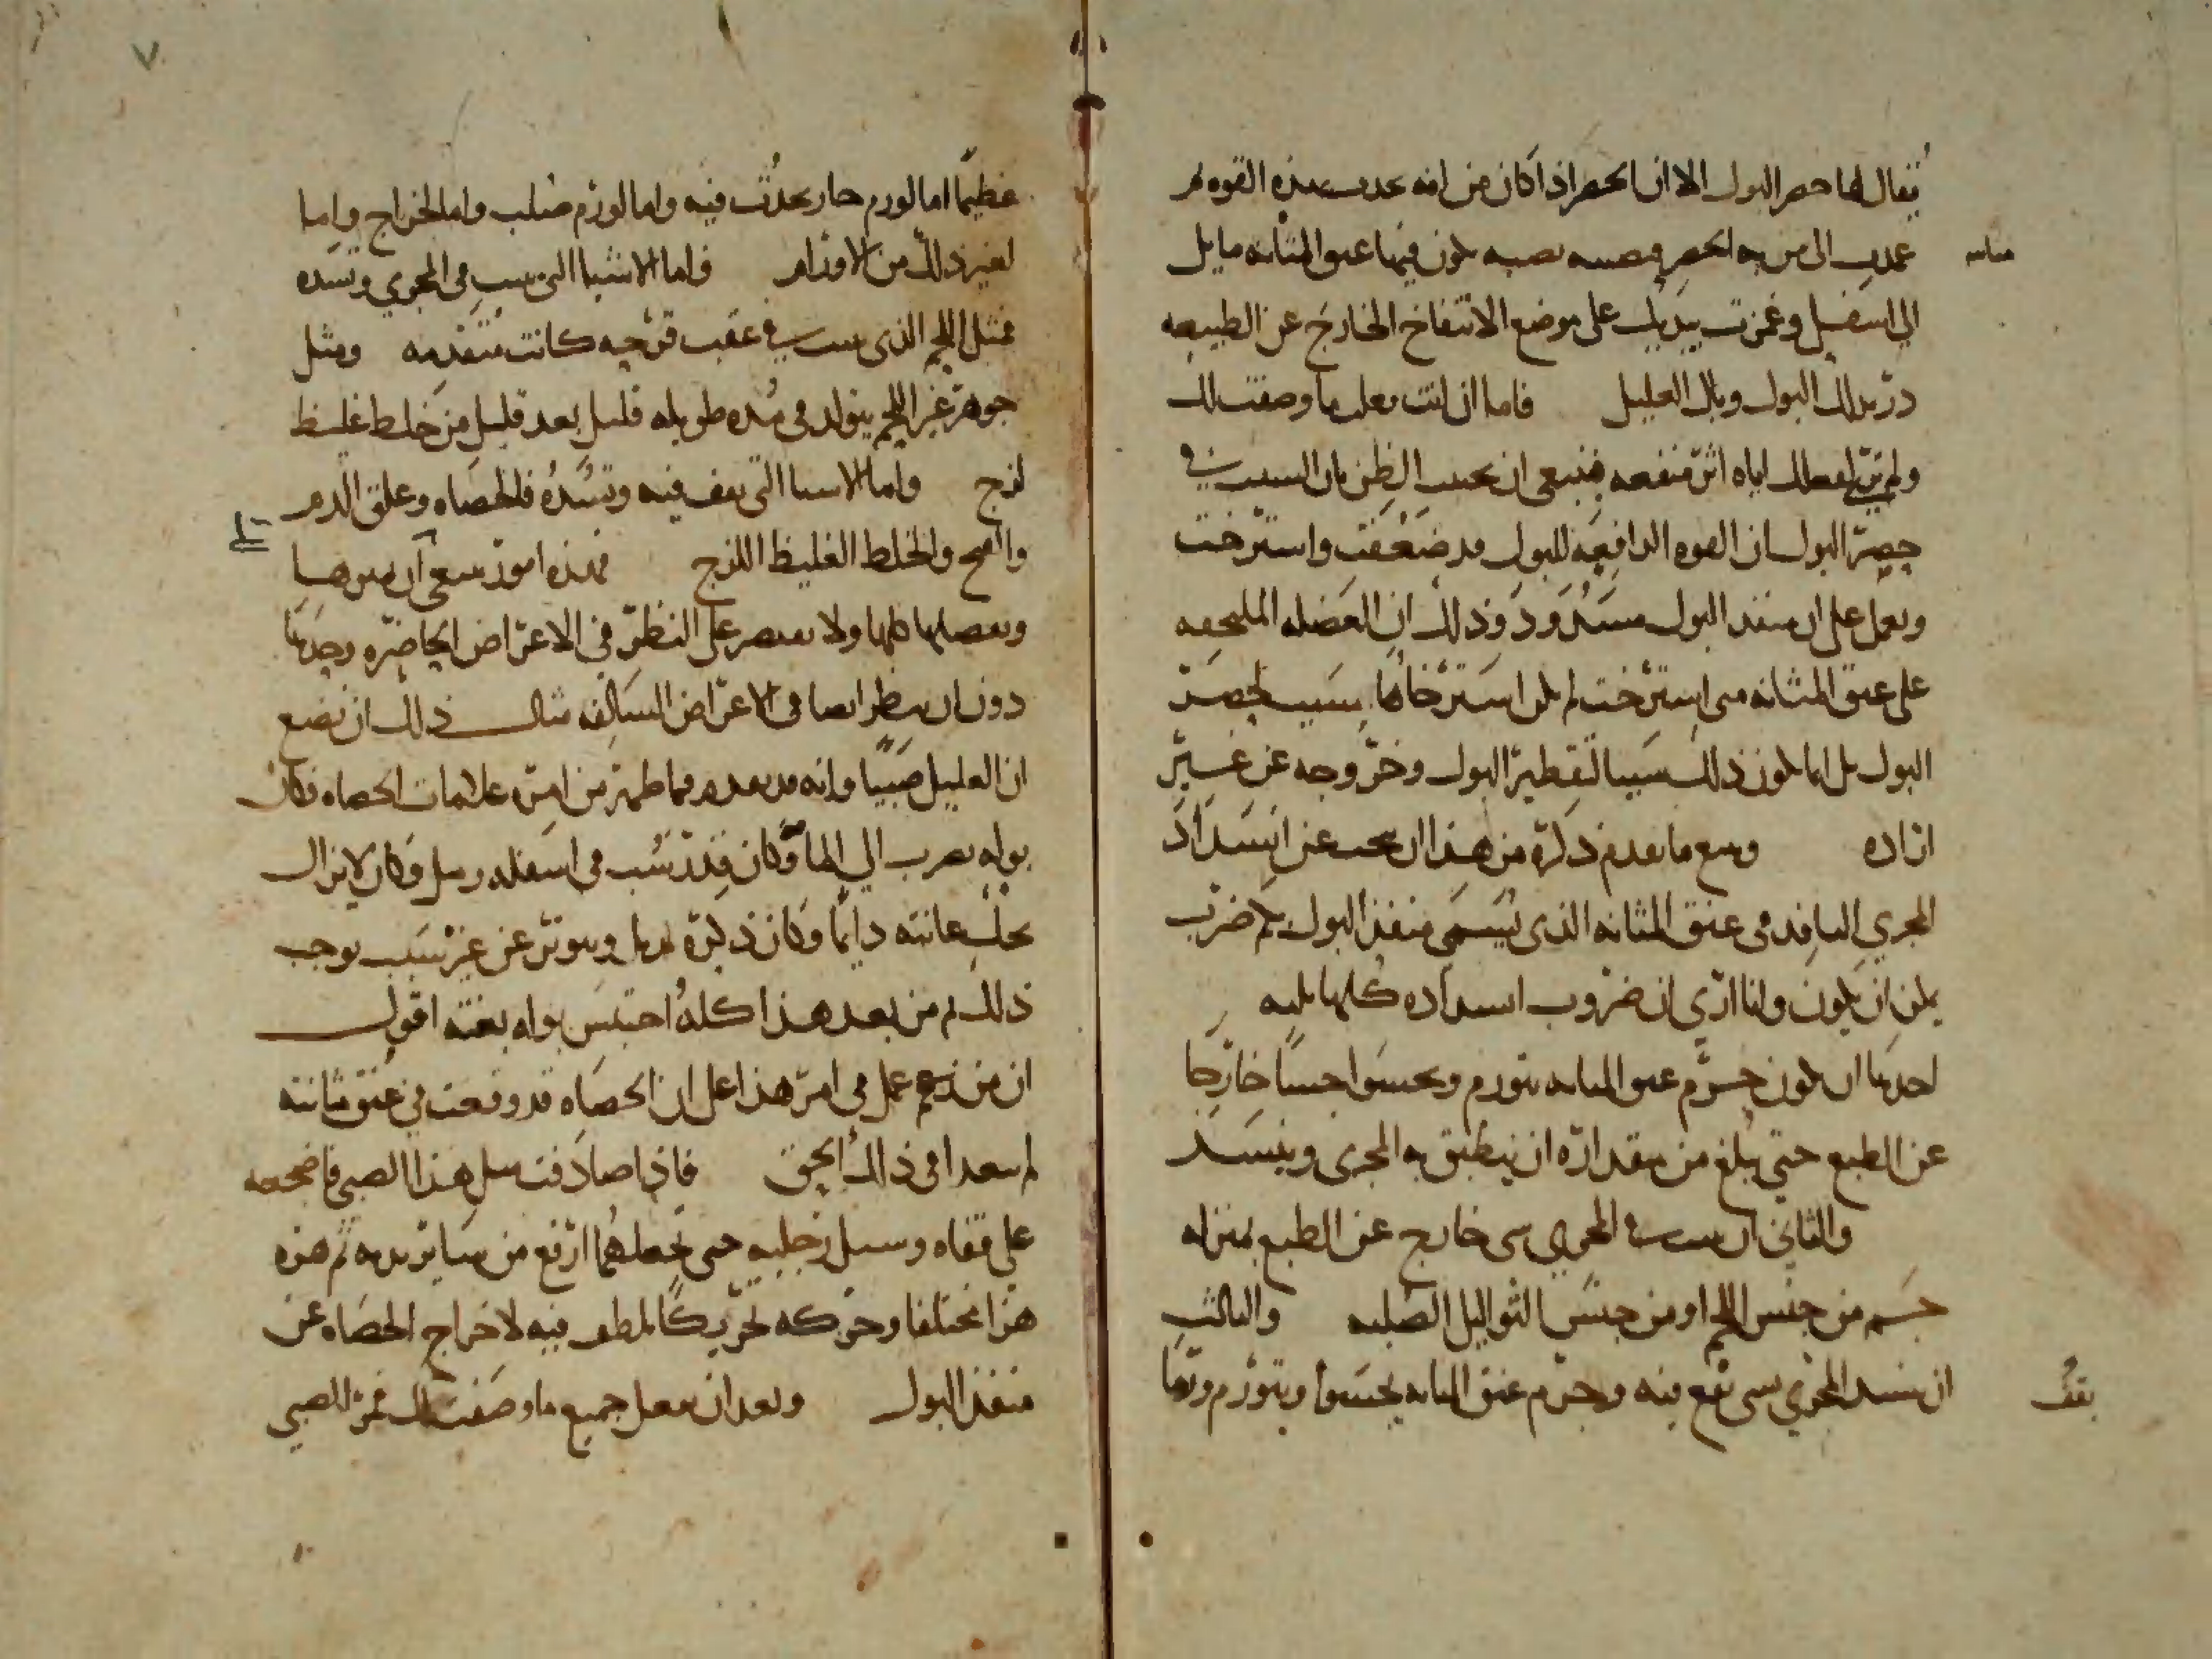 يقال لها حصر البول الا ان الحصر اذا كان من افه حدثت بهذه القوه ثم
عمدت الى من به الحصر فنصبته نصبه يكون فيها عنق المثانه مايل
مثانته
الي اسفل وغمزت بيديك على موضع الانتفاخ الخارج عن الطبيعه
درّ بذلك البول وبال العليل فاما ان انت فعلت ما وصفت لك
ولم تر لفعلك اياه اثر منفعه فينبغي ان تجنب الظن بان السبب في
حصر البول ان القوه الدافعه للبول قد ضعفت واسترخت
وتعمل على ان منفذ البول مسدود وذلك ان العضله الملتحفه
على عنق المثانه متى استرخت لم يكن استرخاوها بسبب لحصر
البول بل انما يكون ذلك سببا لتقطير البول وخروجه عن غير
اراده ومع ما تقدم ذكره من هذا ان تبحث عن انسداد
المجري النافذ في عنق المثانه الذي يسمي منفذ البول بكم ضرب
يمكن ان يكون وانا ارى ان ضروب انسداده كلها ثلثه
احدها ان يكون جرم عنق المثانه يتورم ويحسوا حسا خارجا
عن الطبع حتي يبلغ من مقداره ان ينطبق به المجرى وينسد
والثاني ان ينبت في المجري شي خارج عن الطبع بمنزله
جسم من جنس اللحم او من جنس الثواليل الصلبه والثالث
ان ينسد المجري بشي يقع فيه وجرم عنق المثانه يحسوا ويتورم ورما
يقف
٧
عظيما اما لورم حار يحدث فيه واما لورم صلب واما لخراج واما
لغير ذلك من الاورام واما الاشيا التي تنبت في المجري وتسده
فمثل اللحم الذي ينبت في عقب قرحه كانت متقدمه ومثل
جوهر غير اللحم يتولد في مده طويله قليل بعد قليل من خلط غليظ
لزج واما الاشيا التي تقف فيه وتسده فالحصاه وعلق الدم
والقيح والخلط الغليظ اللزج فهذه امور ينبغي ان تميزها
وتفصلها كلها ولا تقتصر على النظر في الاعراض الحاضره وحدها
دون ان تنظر ايضا في الاعراض السالفه مثال ذلك ان نضع
ان العليل صبيا وانه قد تقدم فيما ظهر من امره علامات الحصاه فكان
بوله يضرب الي الما وكان قد رسب في اسفله رمل وكان لا يزال
يحك عانته دايما وكان ذكره يذبل ويتوتر عن غير سبب يوجب
ذلك ثم من بعد هذا كله احتبس بوله بغته اقول
ان من زعم عمل في امر هذا على ان الحصاه قد وقعت في عنق مثانته
لم يتعدا في ذلك الحق فاذا صادفت مثل هذا الصبي فاضجعه
على قفاه وشيل رجليه حتى تجعلهما ارفع من ساير بدنه ثم هزه
هزا مختلفا وحركه تحريكا تلطف فيه لاخراج الحصاه عن
منفذ البول وبعد ان تفعل جميع ما وصفت لك فمر الصبي